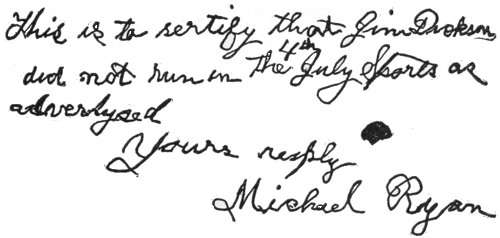 This is to sertify that Jim Dookson
did not run in the 4th July Sports as
adverlysed
Yours resply
Michael Ryan